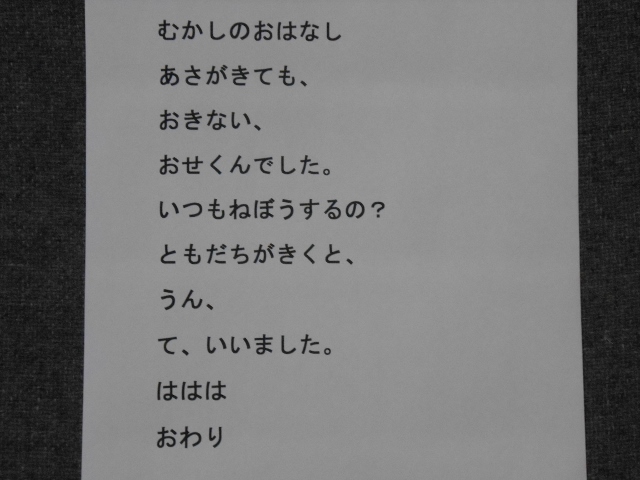 むかしのおはなし
あさがきても、
おきない、
おせくんでした。
いつもねぼうするの？
ともだちがきくと、
うん、
て、いいました。
ははは
おわり